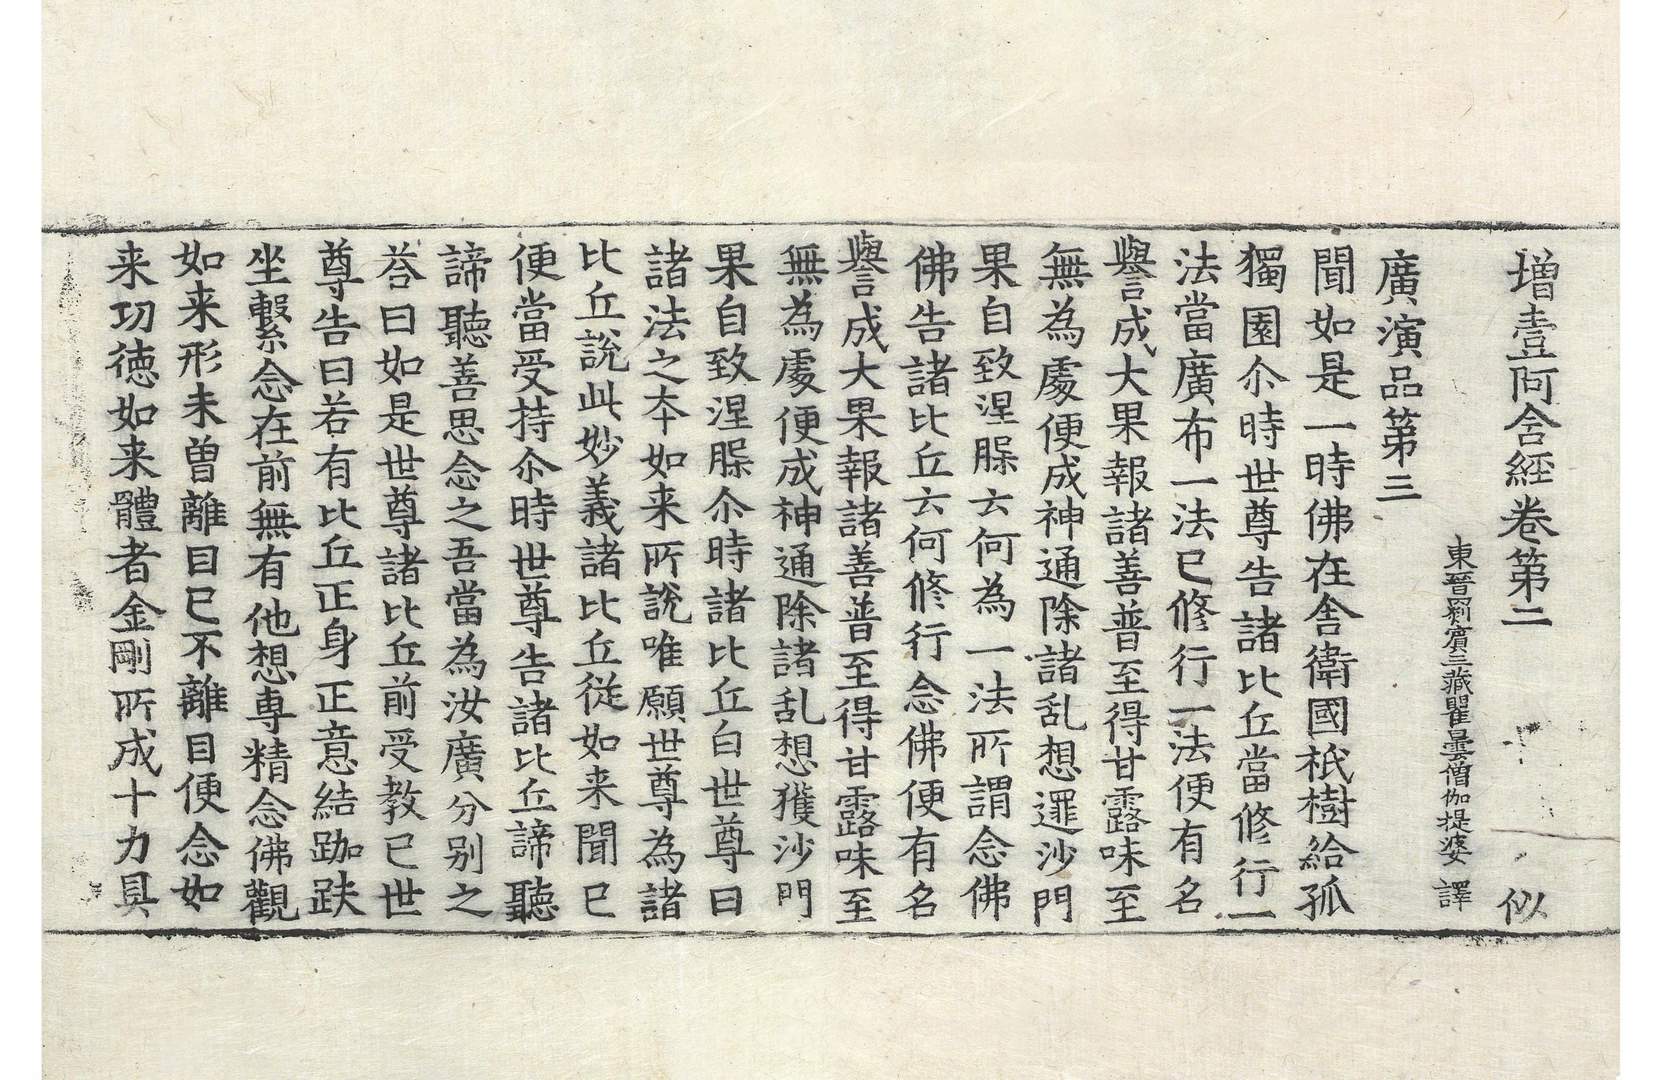 增壹阿含經卷第二 似
東晉罽賓三藏瞿曇僧伽提婆 譯
廣演品第三
聞如是一時佛在舍衛國祇樹給孤
獨園尒時世尊告諸比丘當修行一
法當廣布一法已修行一法便有名
譽成大果報諸善普至得甘露味至
無為處便成神通除諸乱想逮沙門
果自致涅槃云何為一法所謂念佛
佛告諸比丘云何修行念佛便有名
譽成大果報諸善普至得甘露味至
無為處便成神通除諸乱想獲沙門
果自致涅槃尒時諸比丘白世尊曰
諸法之本如来所說唯願世尊為諸
比丘說此妙義諸比丘從如来聞已
便當受持尒時世尊告諸比丘諦聽
諦聽善思念之吾當為汝廣分別之
荅曰如是世尊諸比丘前受教已世
尊告曰若有比丘正身正意結跏趺
坐繫念在前無有他想專精念佛觀
如来形未曾離目已不離目便念如
来功德如来體者金剛所成十力具